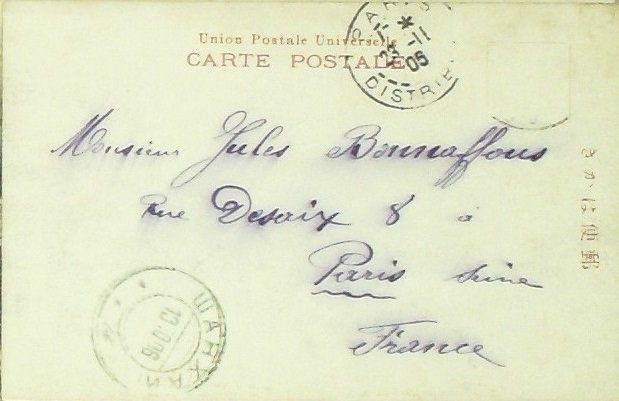 Union Postale Universelle
CARTE POSTALE
* 23 -11 05
DISTRI
Monsieur Jules Bonnaffous
Rue Desaix 8 à
Paris Seine
France
郵便はかき
ШАНХАЙ